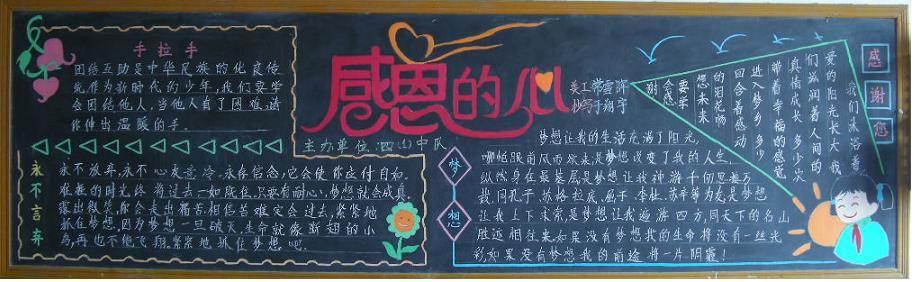 手拉手
团结互助是中华民族的优良传
统作为新时代的少年,我们要学
会团结他人,当他人有了困难,请
你伸出温暖的手.
感恩的心
主办单位:四(1)中队
永不言弃
永不放弃,永不心灰意冷.永存信念,它会使你应付自如.
难熬的时光终将过去一如既往,只要有耐心,梦想就会成真.
露出微笑,你会走出痛苦,相信苦难定会过去,紧紧地
抓住梦想,因为梦想一旦破灭,生命就像断翅的小
鸟,再也不能飞翔.紧紧地抓住梦想吧.
梦想
梦想让我的生活充满了阳光,
哪怕狂风雨欲来,是梦想改变了我的人生,
纵然身在蓝装是梦想让我神游千仞思羡万
我同孔子、苏格拉底、屈子、李杜、苏辛等为友,是梦想
让我上下求索是梦想让我遍游四方,同天下的名山
胜迹相往来.如果没有梦想我的生命将没有一丝光
彩,如果没有梦想我的前途将一片阴霾!
感谢您
我们沐浴着
爱的阳光长大我
们滋润着人间的
真情成长,多少次
带着幸福的感觉
进入梦乡,多少
回含着感动
的泪花畅
想未来
要学
会感
谢